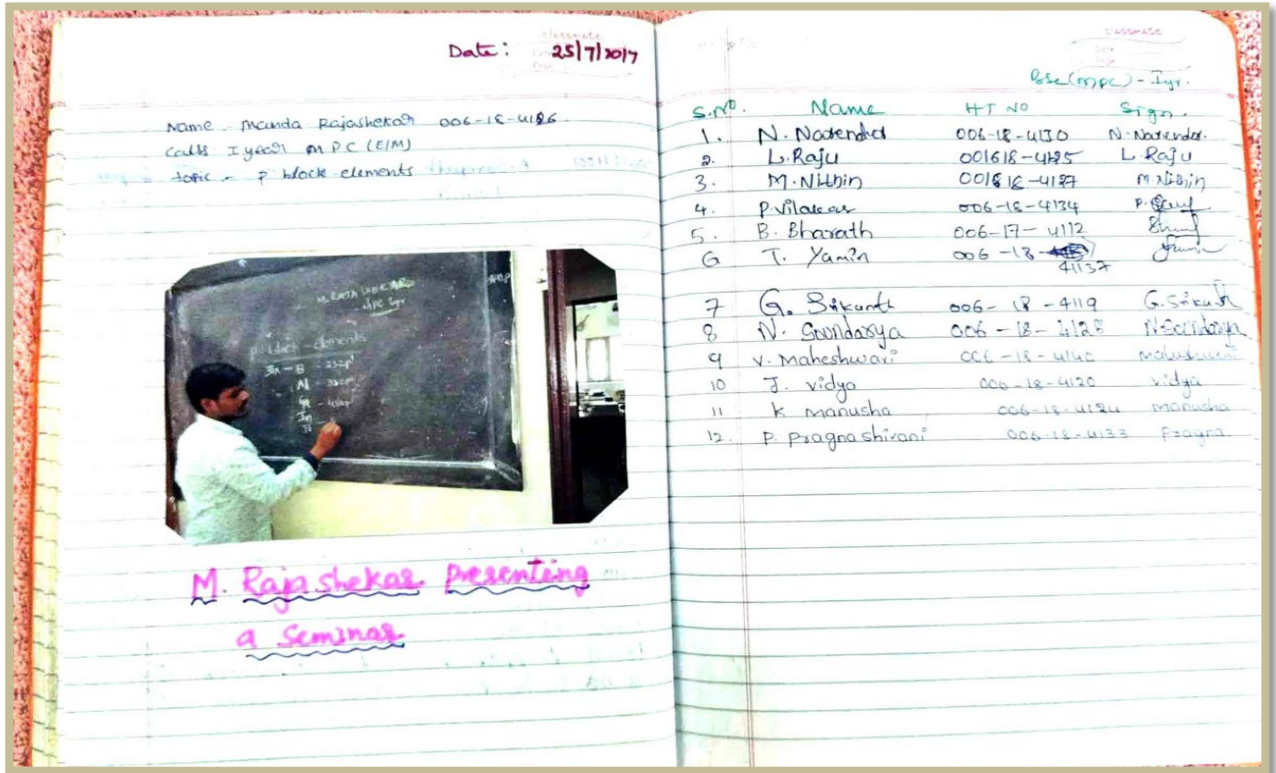 classmate
Date : 25/7/2017
Name - Manda Rajashekar 006-18-4126
Calss I year M P C (E/M)
topic - p block elements
M. RAJA SHEKAR
MPC Iyr
p-block - elements
B - 2s2p¹
Al - 3s2p¹
Ga - 4s2p¹
In
Tl
M. Rajashekar Presenting
a Seminar
classmate
Date
Page
Bsc (mpc) - Iyr.
S.No. Name HT NO Sign.
1. N. Narendar 006-18-4130 N. Narendar.
2. L. Raju 001618-4125 L. Raju
3. M. Nithin 001618-4127 M. Nithin
4. P. Vilakar 006-18-4134 P.
5. B. Bharath 006-17-4112
6 T. Yamin 006-18-
41137
7 G. Srikanth 006-18-4119 G. Srikanth
8 N. Soundarya 006-18-4128 N. Soundarya
9 V. Maheshwari 006-18-4140 Maheshwari
10 J. vidya 006-18-4120 vidya
11 K manusha 006-18-4124 manusha
12. P. Pragnashivani 006-18-4133 Pragna